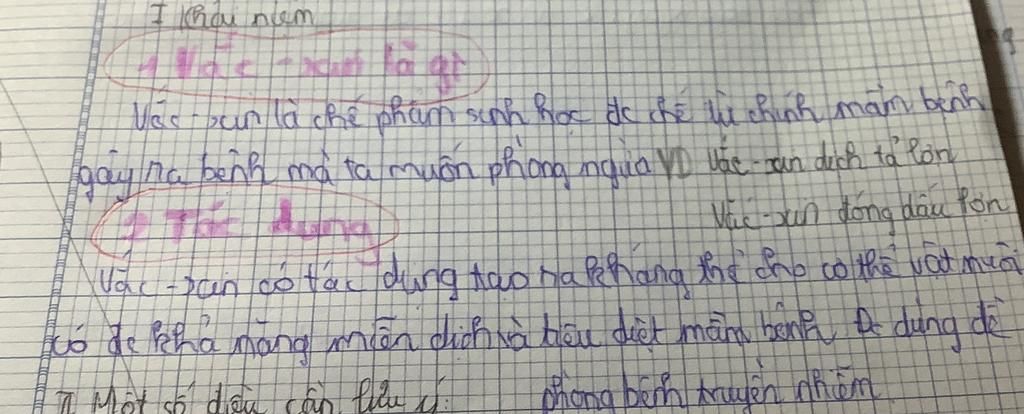 I Khái niệm
1 Vắc-xin là gì
Vắc-xin là chế phẩm sinh học đc chế từ chính mầm bệnh
gây ra bệnh mà ta muốn phòng ngừa VD Vắc-xin dịch tả lợn
Vắc-xin đóng dấu lợn
2 Tác dụng
Vắc-xin có tác dụng tạo ra kháng thể cho cơ thể vật nuôi
có đc khả năng miễn dịch và tiêu diệt mầm bệnh Đc dùng để
phòng bệnh truyền nhiễm
II Một số điều cần lưu ý: